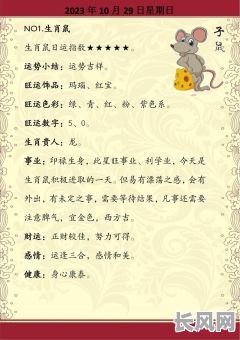 2023年10月29日星期日
NO1.生肖鼠
子鼠
生肖鼠日运指数★★★★★。
运势小结：运势吉祥。
旺运饰品：玛瑙、红宝。
旺运色彩：绿、青、红、粉、紫色系。
旺运数字：5、0。
生肖贵人：龙。
事业：印禄生身，此星旺事业、利学业，今天是
生肖鼠积极进取的一天。但易有漂荡之感，会有
外出，有未定之事，需要等待结果，凡事还需要
注意脾气，宜金色，西方吉。
财运：正财较佳，努力可得。
感情：运逢三合，感情和美。
健康：身心康泰。
长风网